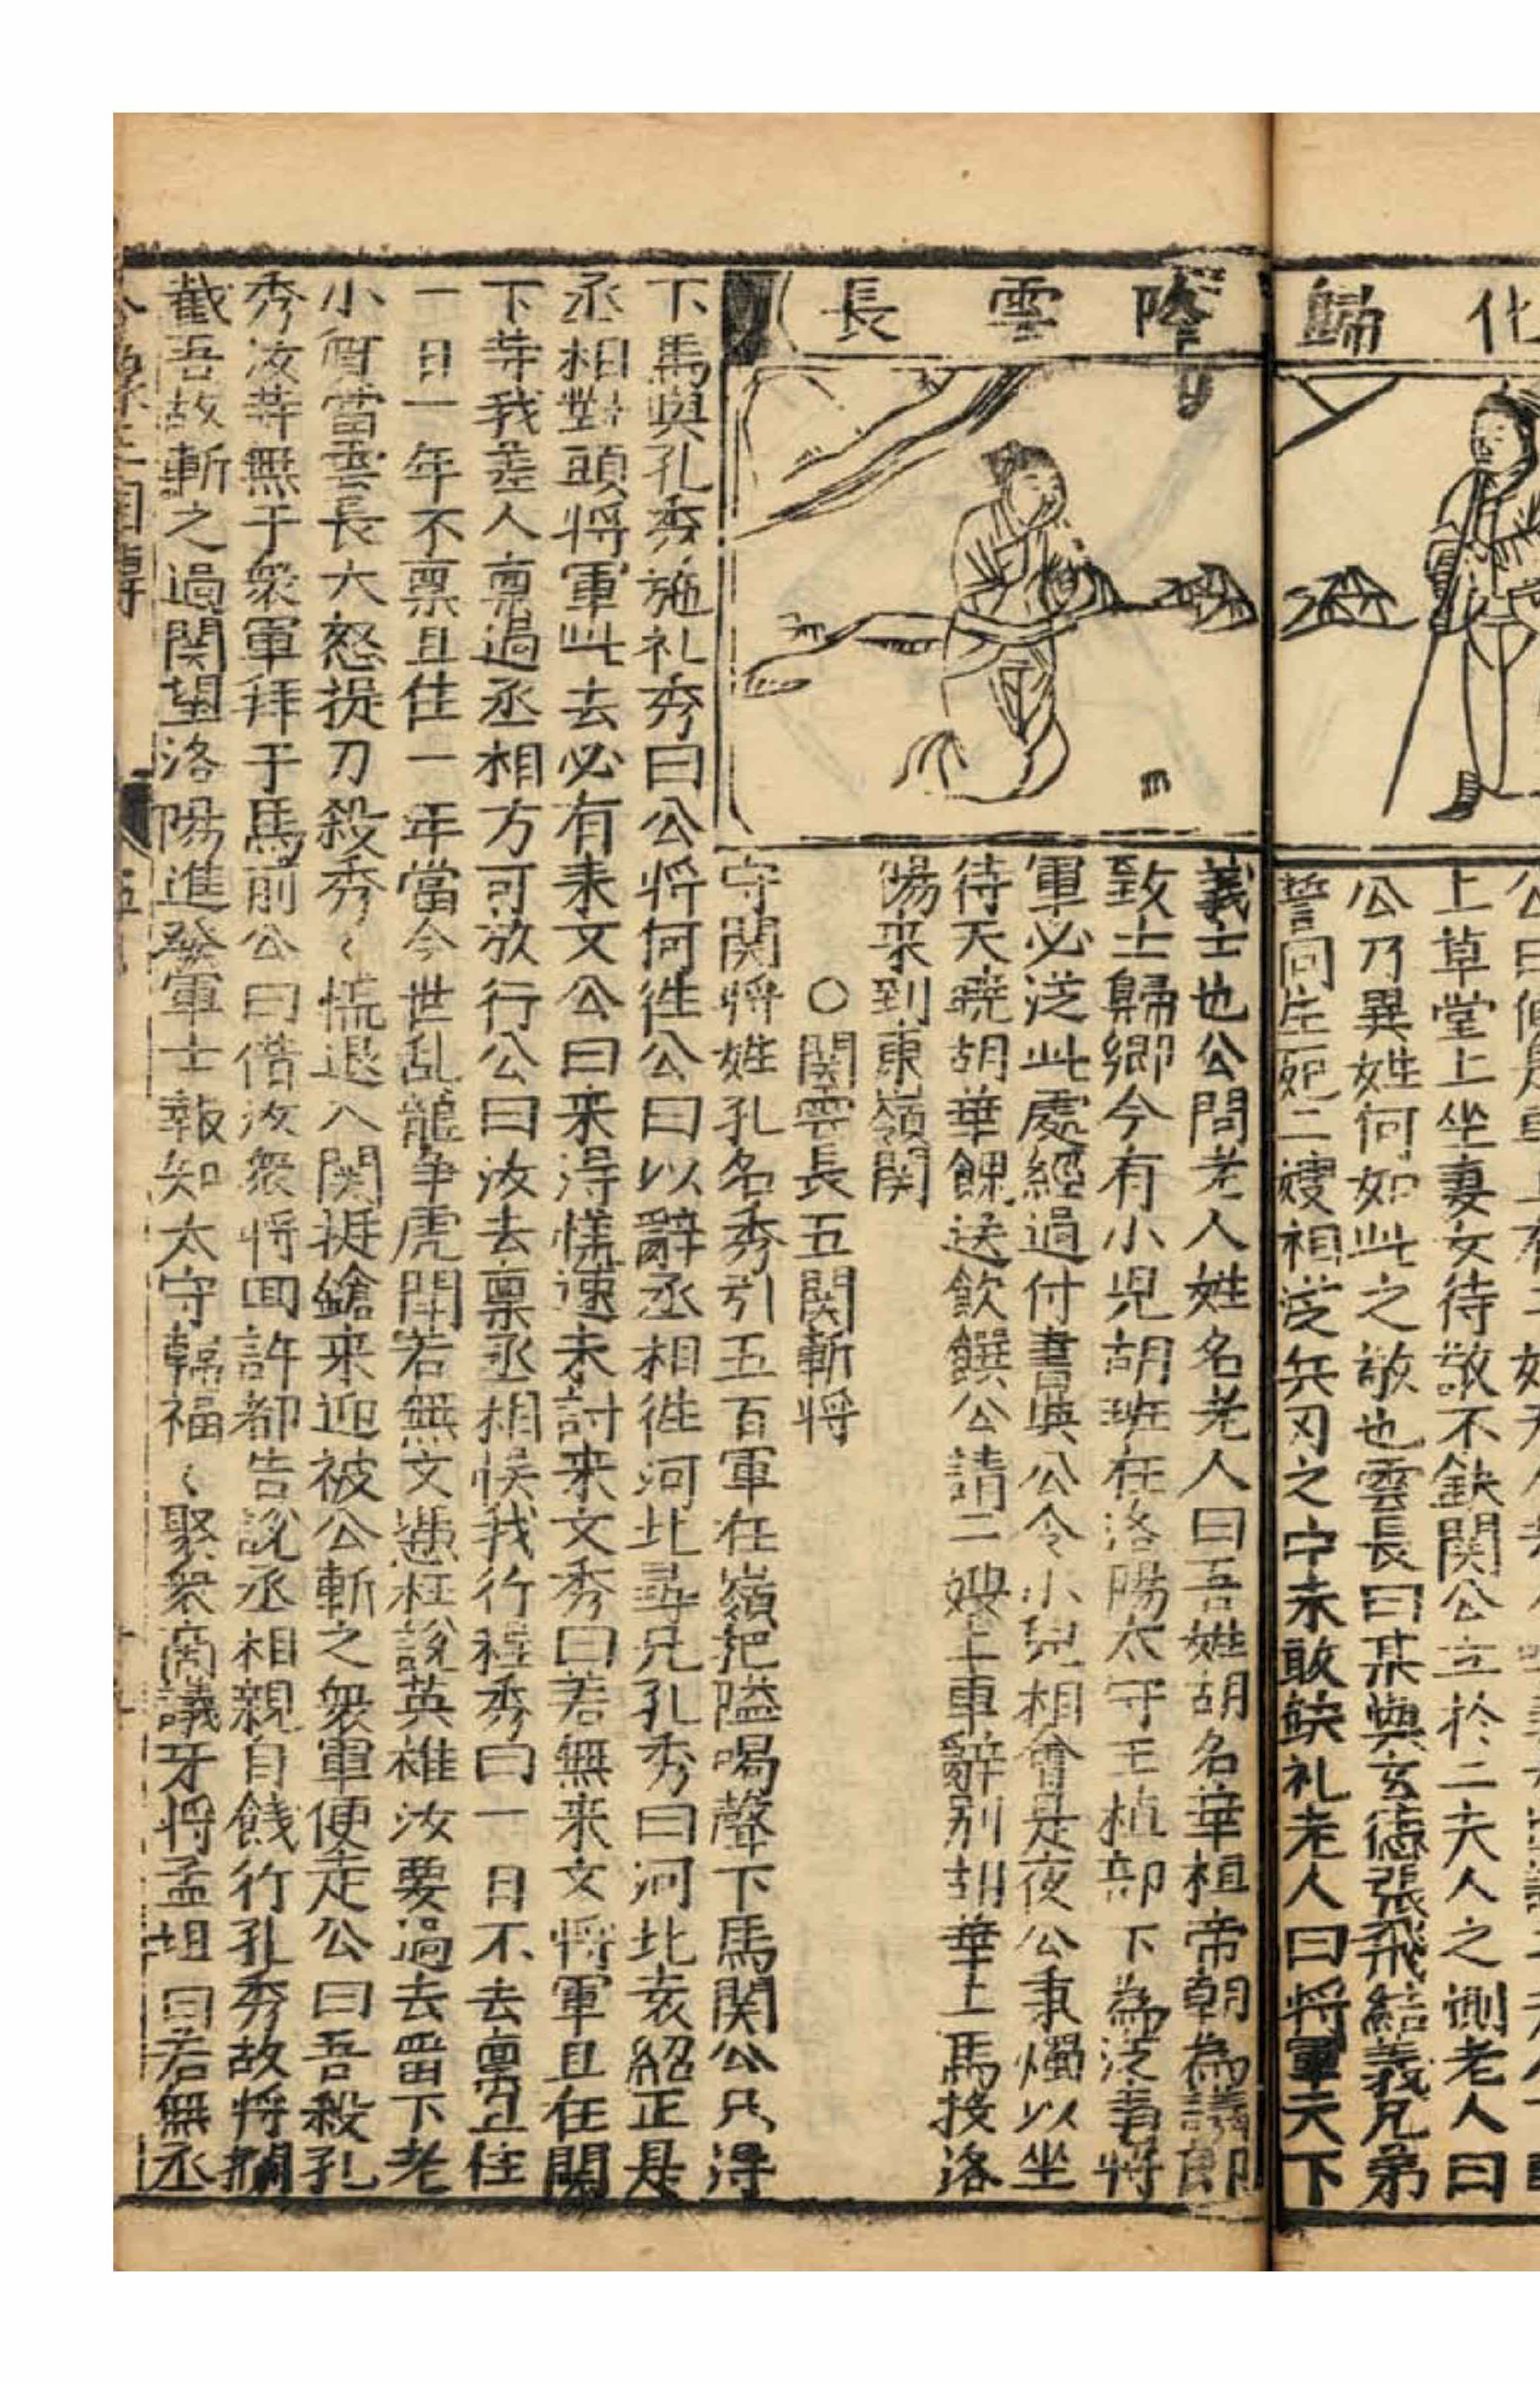 化歸降雲長
上草堂上坐妻女待敬不缺関公立於二夫人之側老人曰
公乃異姓何如此之敬也雲長曰某與玄德張飛結義兄弟
誓同生死二嫂相從兵刃之中未敢缺礼老人曰將軍天下
義士也公問老人姓名老人曰吾姓胡名華桓帝朝為議郎
致士歸鄉今有小児胡班在洛陽太守王植部下為從事將
軍必從此處經過付書與公令小兒相會是夜公秉燭以坐
待天曉胡華餜送飲饌公請二嫂上車辭別胡華上馬投洛
陽来到東嶺関
○関雲長五関斬将
守関將姓孔名秀引五百軍在嶺把隘喝聲下馬関公只得
下馬與孔秀施礼秀曰公将何徃公曰以辭丞相徃河北尋兄孔秀曰河北袁紹正是
丞相對頭將軍此去必有来文公曰来得慌速未討来文秀曰若無来文將軍且在関
下䓁我差人禀過丞相方可放行公曰汝去禀丞相悞我行程秀曰一日不去禀且住
一日一年不禀且住一年當今世乱龍争虎鬥若無文憑枉說英雄汝要過去畱下老
小質當雲長大怒提刀殺秀〻慌退入関挺鎗来迎被公斬之衆軍便走公曰吾殺孔
秀汝䓁無于衆軍拜于馬前公曰借汝衆将囬許都告說丞相親自餞行孔秀故将攔
截吾故斬之過関望洛陽進發軍士報知太守韓福〻聚衆商議牙将孟坦曰若無丞